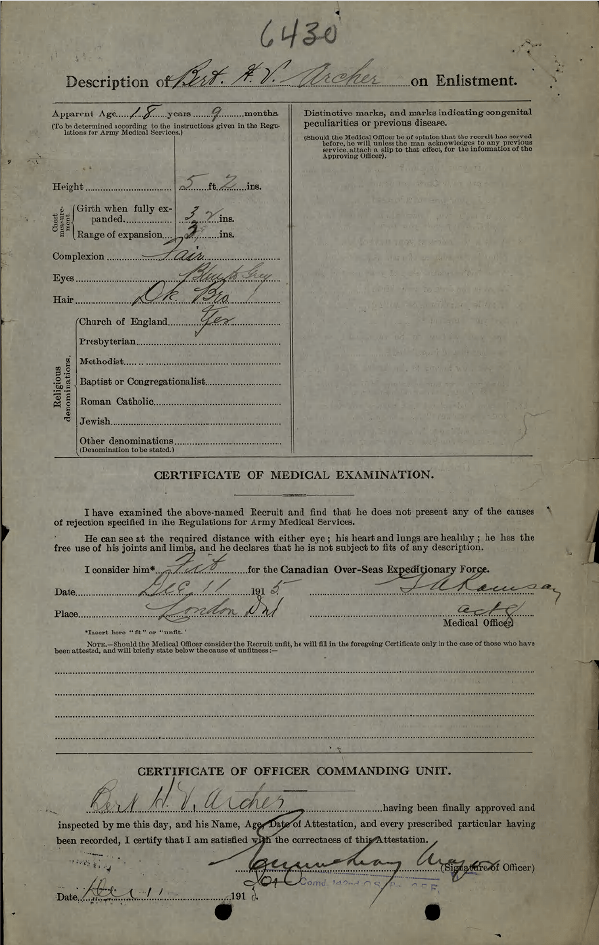 6430
Description of Bert. H. V. Archer on Enlistment.
Apparent Age 18 years 9 months
(To be determined according to the instructions given in the Regulations for Army Medical Services.)
Distinctive marks, and marks indicating congenital peculiarities or previous disease.
(Should the Medical Officer be of opinion that the recruit has served before, he will unless the man acknowledges to any previous service, attach a slip to that effect, for the information of the Approving Officer).
Height 5 ft 7 ins.
Chest measurement.
Girth when fully expanded 32 ins.
Range of expansion 3 ins.
Complexion Fair
Eyes
Hair Dk Bro
Religious denominations.
Church of England Yes
Presbyterian
Methodist
Baptist or Congregationalist
Roman Catholic
Jewish
Other denominations
(Denomination to be stated.)
CERTIFICATE OF MEDICAL EXAMINATION.
I have examined the above-named Recruit and find that he does not present any of the causes
of rejection specified in the Regulations for Army Medical Services.
He can see at the required distance with either eye; his heart and lungs are healthy; he has the
free use of his joints and limbs, and he declares that he is not subject to fits of any description.
I consider him* Fit for the Canadian Over-Seas Expeditionary Force.
Date Dec 11 1915
Place London Ont
Medical Officer
*Insert here "fit" or "unfit."
NOTE.—Should the Medical Officer consider the Recruit unfit, he will fill in the foregoing Certificate only in the case of those who have
been attested, and will briefly state below the cause of unfitness:—
CERTIFICATE OF OFFICER COMMANDING UNIT.
Bert H. V. Archer having been finally approved and
inspected by me this day, and his Name, Age, Date of Attestation, and every prescribed particular having
been recorded, I certify that I am satisfied with the correctness of this Attestation.
(Signature of Officer)
Date Dec 11 191